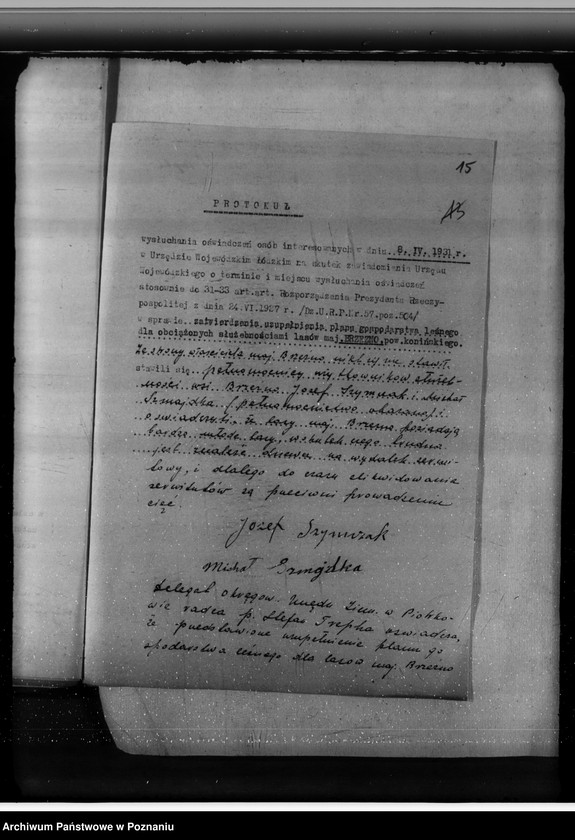 15
PROTOKUŁ
wysłuchania oświadczeń osób interesowanych w dniu 8. IV. 1931 r.
w Urzędzie Wojewódzkim Łódzkim na skutek zawiadomienia Urzędu
Wojewódzkiego o terminie i miejscu wysłuchania oświadczeń
stosownie do 31-33 art.art. Rozporządzenia Prezydenta Rzeczy-
pospolitej z dnia 24.VI.1927 r. /Dz.U.R.P.Nr.57.poz.504/
w sprawie zatwierdzenia uzupełnienia planu gospodarstwa leśnego
dla obciążonych służebnościami lasów maj. BRZEZNO pow.konińskiego.
Ze strony właściciela maj. Brzezno nikt się nie stawił
stawili się pełnomocnicy użytkowników służeb-
ności wsi Brzezno Józef Szymczak i Michał
Szmajdka (pełnomocnictwo okazano) i
oświadczyli, że lasy maj. Brzezno posiadają
bardzo młode lasy, wskutek czego trudno
jest znaleźć drzewa na wydatek serwi-
towy, i dlatego do czasu zlikwidowania
serwitutów są przeciwni prowadzeniu
cięć.
Józef Szymczak
Michał Szmajdka
Delegat Okręgow. Urzędu Ziem. w Piotrko-
wie radca p. Stefan Trepka oświadcza,
że przedstawione uzupełnienie planu go
spodarstwa leśnego dla lasów maj. Brzezno
Archiwum Państwowe w Poznaniu